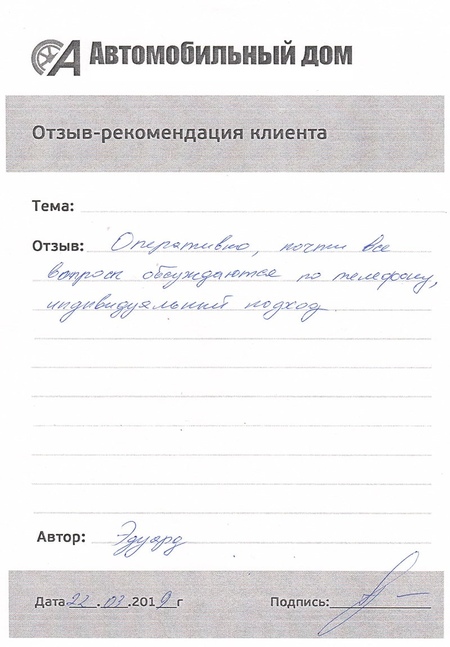 Автомобильный дом
Отзыв-рекомендация клиента
Тема:
Отзыв: Оперативно, почти все
вопросы обсуждаются по телефону,
индивидуальный подход.
Автор: Эдуард
Дата 22.03.2019г Подпись: